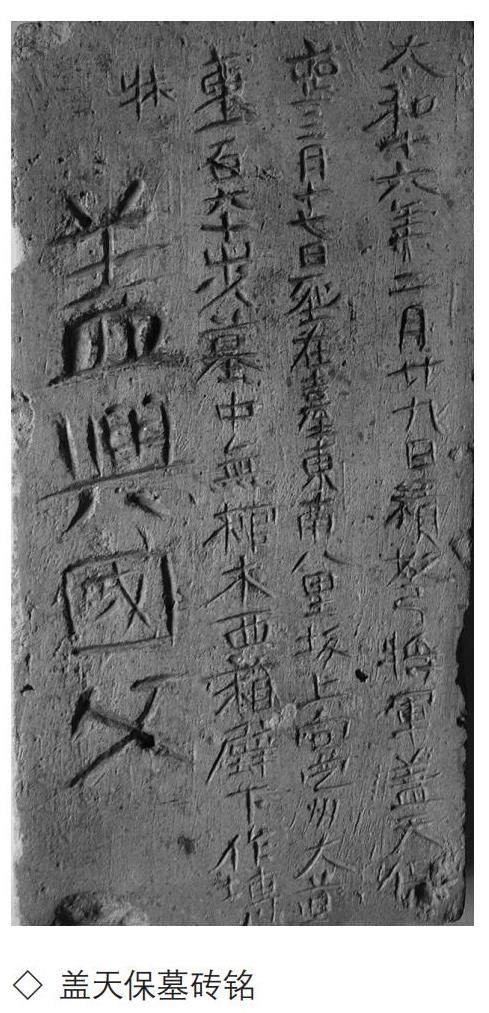 太和十六年二月廿九日積弩將軍盖天保
喪三月十七日塟在臺東南八里坂上向定州大道
東一百六十步墓中無棺木西葙壁下作塼
牀
盖興國父
◇ 盖天保墓砖铭